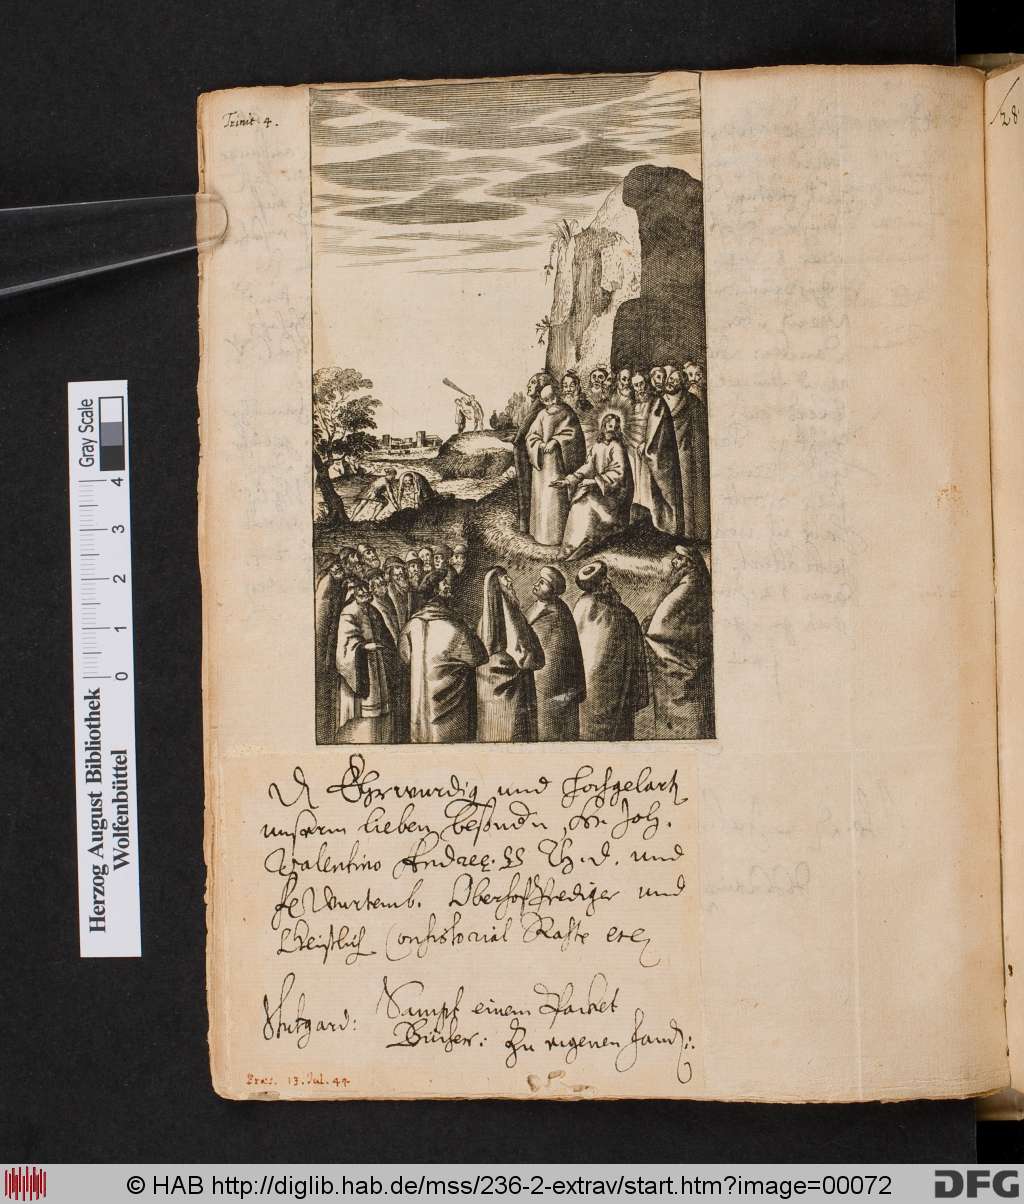 Trinit. 4.
28
Dem Ehrwürdig und hochgelart
unserm lieben besondern, Hn. Joh.
Valentino Andreę. SS Th. d. und
Wurtemb. Oberhoff Prediger und
Geistlich Consistorial Rahte etc
Stutgard:
Sampt einem Packet
Bücher: Zu eigenen Hand:
Præs. 13. Jul. 44
Herzog August Bibliothek
Wolfenbüttel
0 1 2 3 4
Gray Scale
© HAB http://diglib.hab.de/mss/236-2-extrav/start.htm?image=00072
DFG